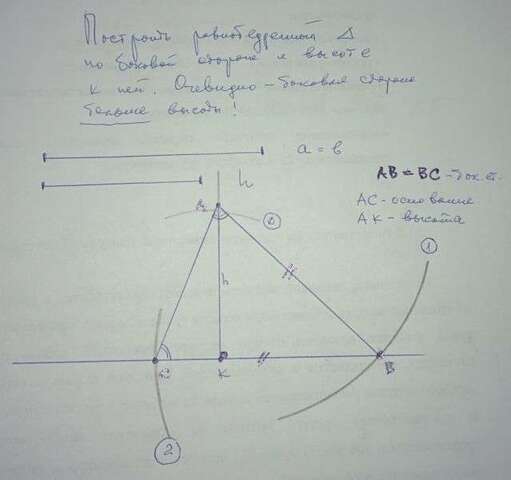 Построить равнобедренный Δ
по боковой стороне и высоте
к ней. Очевидно - боковая сторона
больше высоты!
a = b
h
AB = BC - бок. ст.
AC - основание
AK - высота
A
h
K
B
1
2